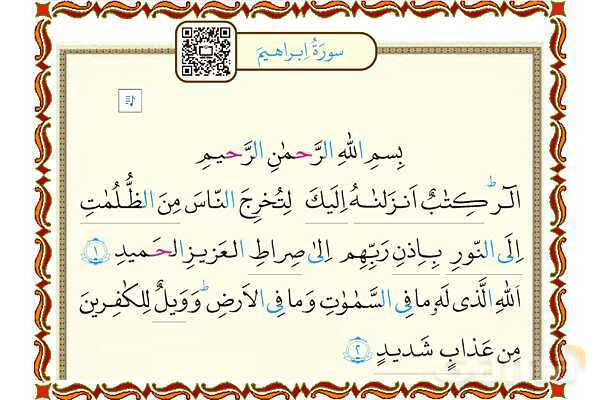 سورَةُ اِبراهـیمَ
بِسمِ اللّٰهِ الرَّحمٰنِ الرَّحیمِ
الٓـرٰ ۚ کِتٰبٌ اَنـزَلنٰـهُ اِلَیکَ لِتُخرِجَ النّاسَ مِنَ الظُّلُمٰتِ
اِلَى النّورِ بِـاِذنِ رَبِّهِم اِلىٰ صِراطِ العَزیزِ الحَمیدِ ١
اَللّٰهِ الَّذى لَهٗ ما فِى السَّمٰوٰتِ وَ ما فِى الاَرضِ ۗ وَ وَیلٌ لِلکٰفِرینَ
مِن عَذابٍ شَدیدٍ ٢